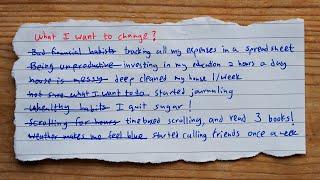 What I want to change?
Bad financial habits tracking all my expenses in a spreadsheet
Being unproductive investing in my education 2 hours a day
house is messy deep cleaned my house 1/week
not sure what I want to do started journaling
Unhealthy habits I quit sugar!
Scrolling for hours timebased scrolling, and read 3 books!
Weather makes me feel blue started calling friends once a week